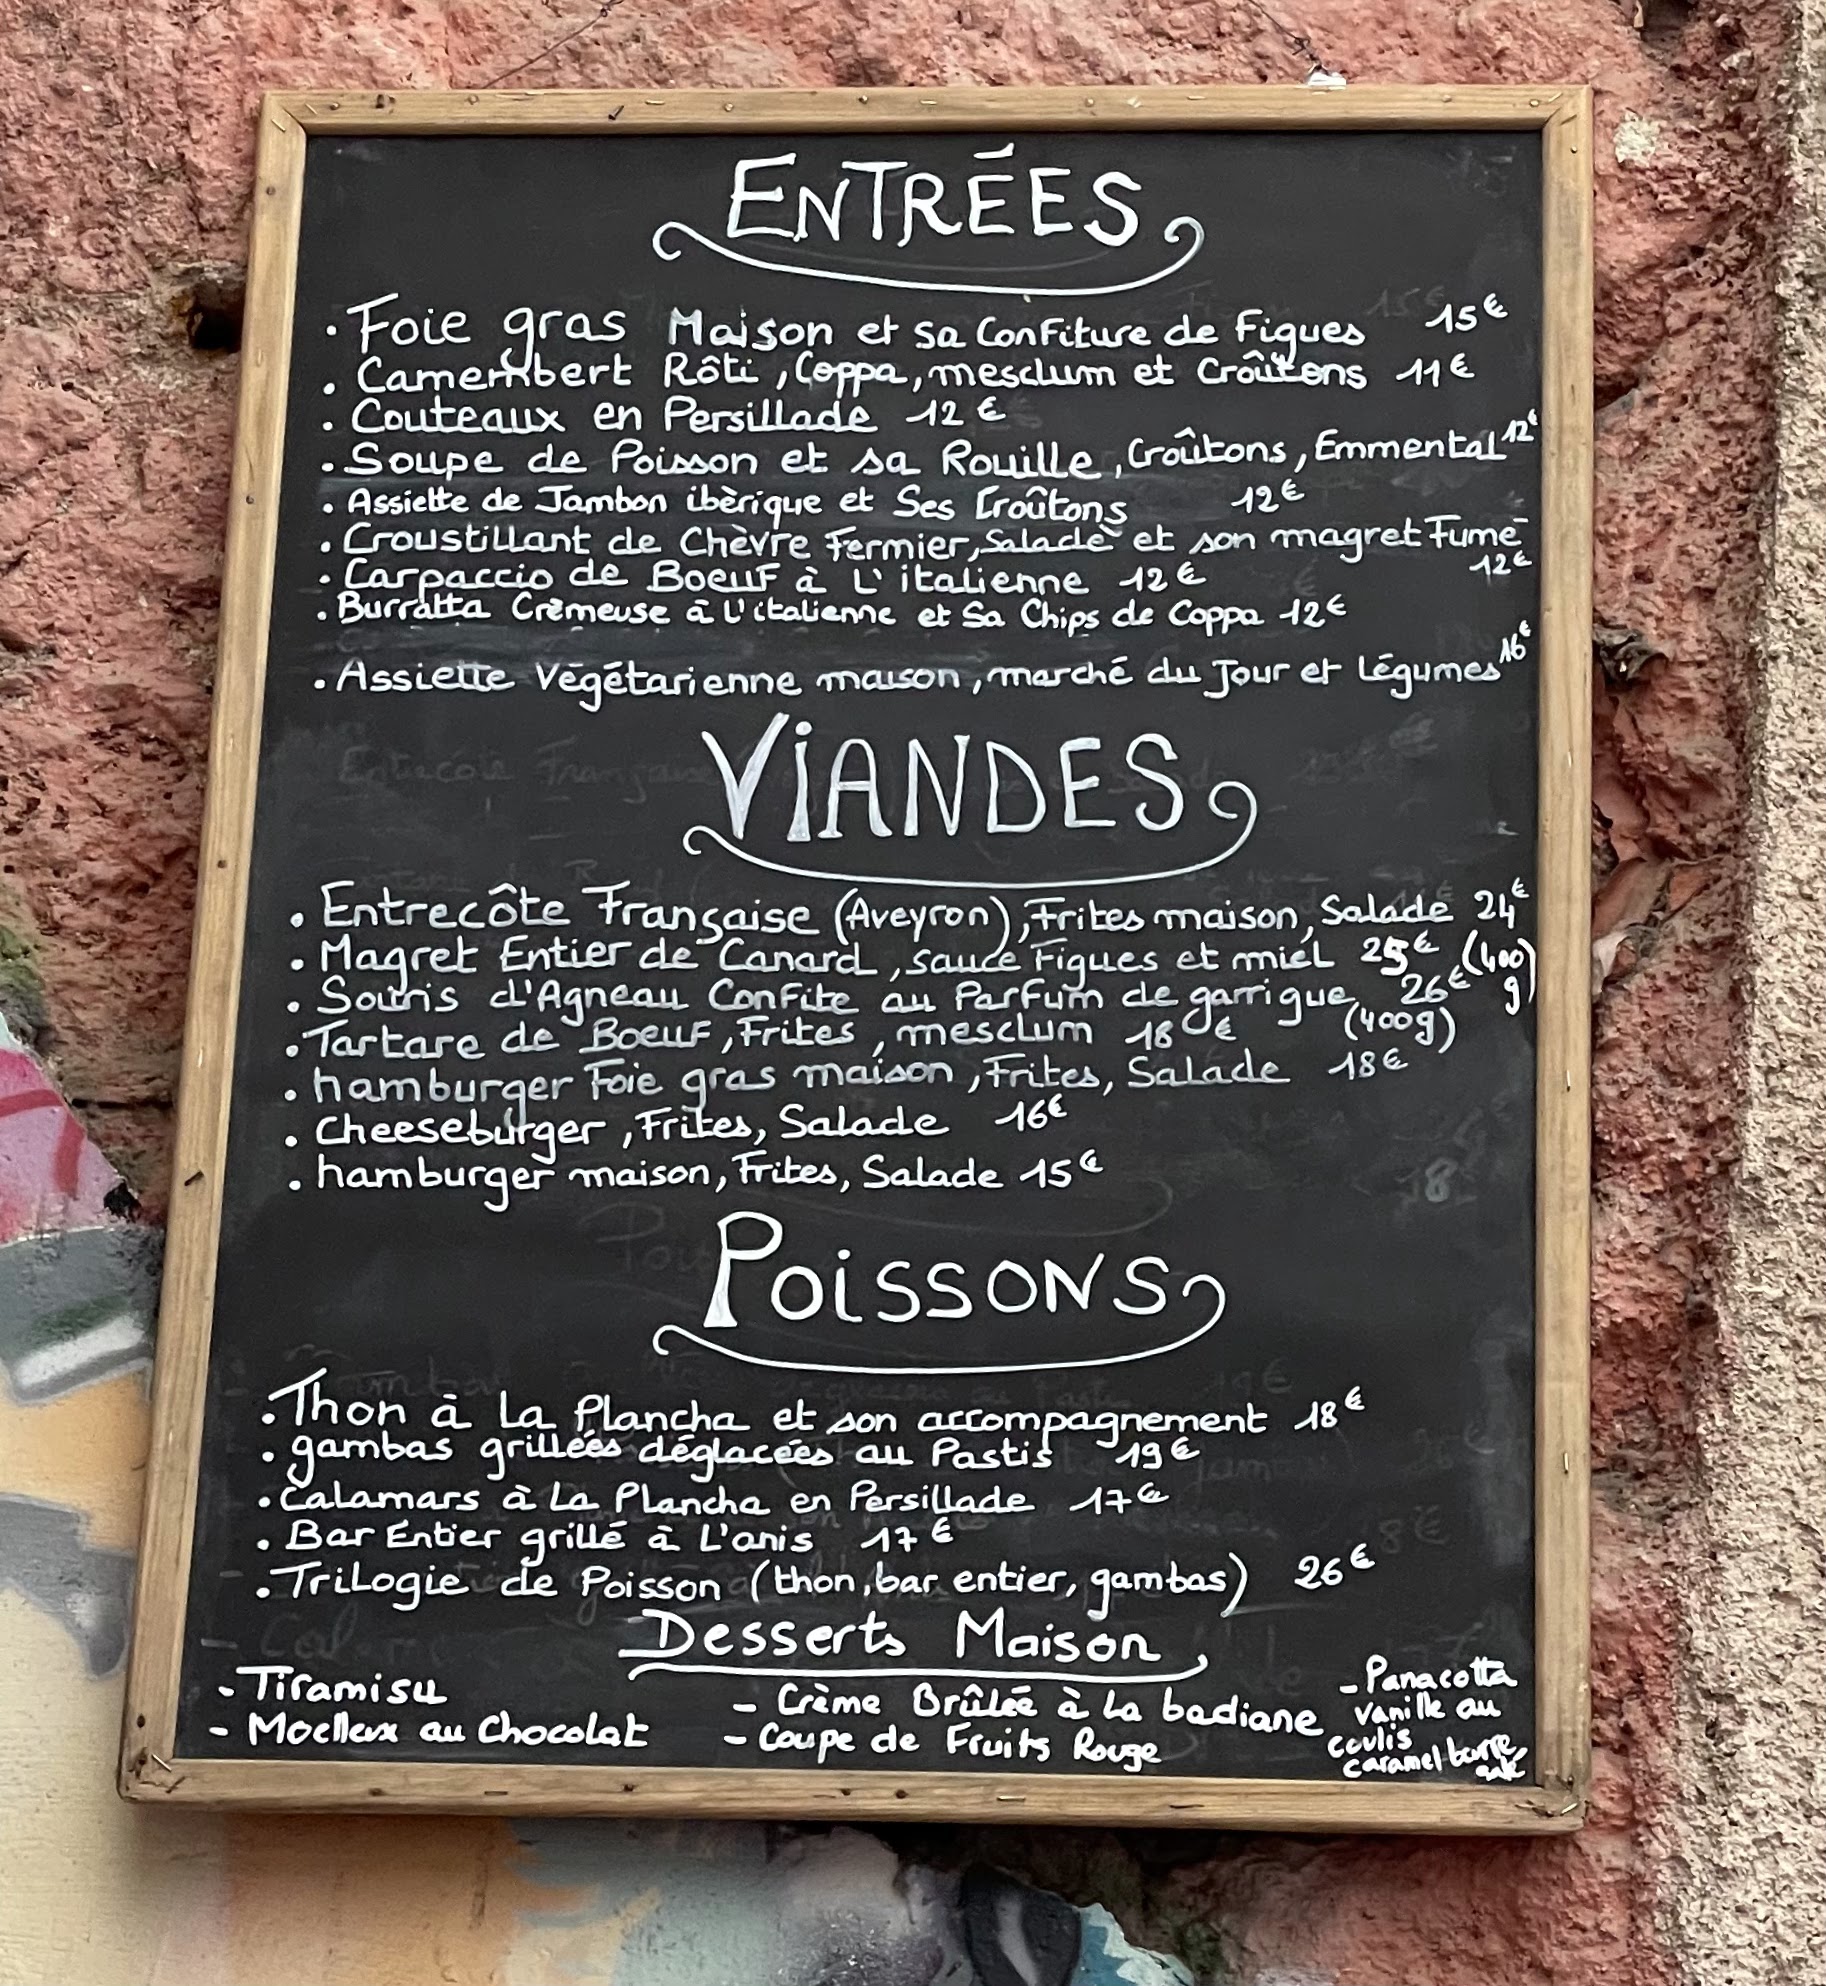 ENTRÉES
• Foie gras Maison et sa Confiture de Figues 15€
• Camembert Rôti, Coppa, mesclum et Croûtons 11€
• Couteaux en Persillade 12€
• Soupe de Poisson et sa Rouille, Croûtons, Emmental 12€
• Assiette de Jambon ibèrique et Ses Croûtons 12€
• Croustillant de Chèvre Fermier, Salade et son magret Fumé
12€
• Carpaccio de Boeuf à L'italienne 12€
• Burratta Crèmeuse à L'italienne et Sa Chips de Coppa 12€
• Assiette Végétarienne maison, marché du Jour et Légumes 16€
VIANDES
• Entrecôte Française (Aveyron), Frites maison, Salade 24€
• Magret Entier de Canard, sauce Figues et miel 25€ (400 g)
• Souris d'Agneau Confite au Parfum de garrigue 26€
(400g)
• Tartare de Boeuf, Frites, mesclum 18€
• hamburger Foie gras maison, Frites, Salade 18€
• Cheeseburger, Frites, Salade 16€
• hamburger maison, Frites, Salade 15€
POISSONS
• Thon à La Plancha et son accompagnement 18€
• gambas grillées déglacées au Pastis 19€
• Calamars à La Plancha en Persillade 17€
• Bar Entier grillé à L'anis 17€
• Trilogie de Poisson (thon, bar entier, gambas) 26€
Desserts Maison
- Tiramisu
- Moelleux au Chocolat
- Crème Brûlée à La badiane
- Coupe de Fruits Rouge
- Panacotta
vanille au
coulis
caramel beurre
salé